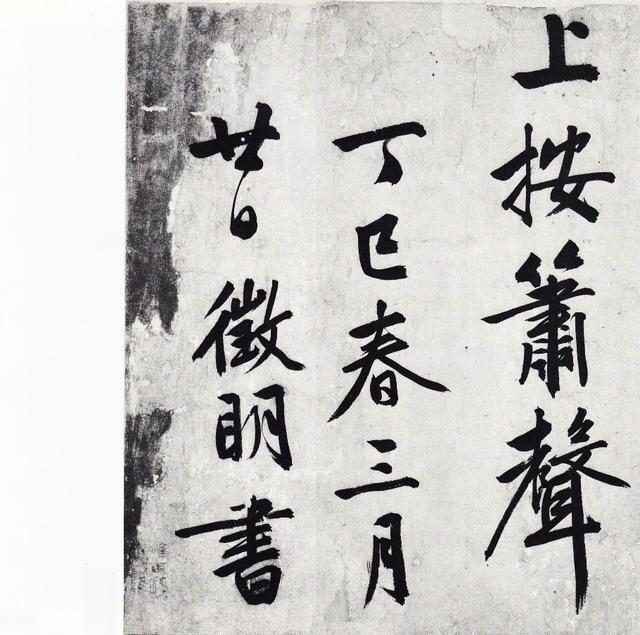 上按簫聲
丁巳春三月
丗日徵明書